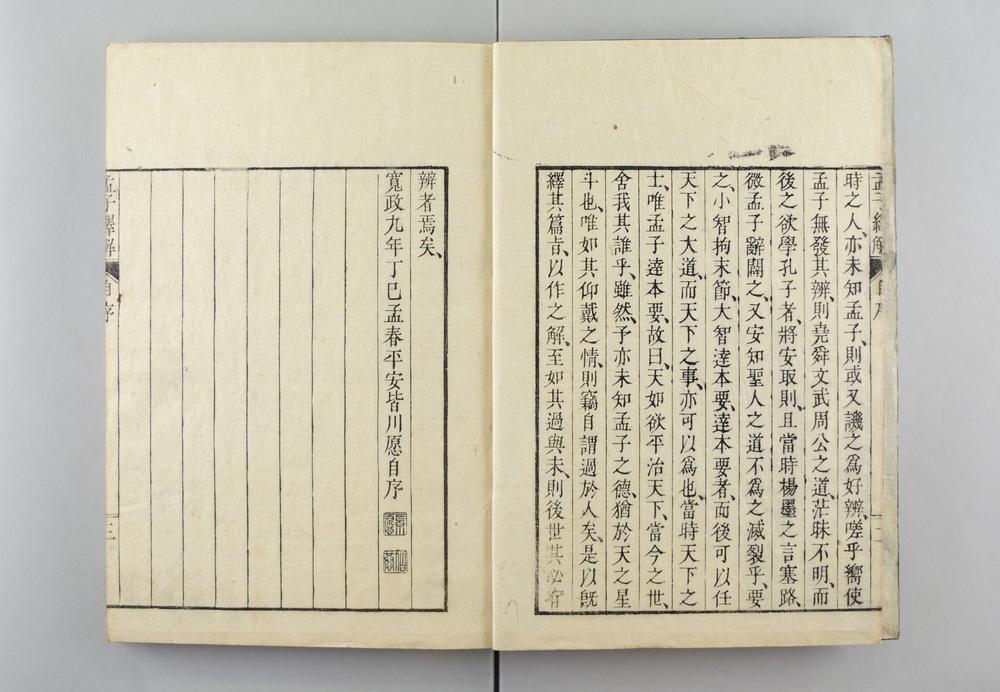 時之人、亦未知孟子、則或又譏之爲好辨、嗟乎嚮使
孟子無發其辨、則堯舜文武周公之道、茫昧不明、而
後之欲學孔子者、將安取則、且當時楊墨之言塞路、
微孟子辭闢之、又安知聖人之道不爲之滅裂乎、要
之、小智拘末節、大智達本要、達本要者、而後可以任
天下之大道、而天下之事、亦可以爲也、當時天下之
士、唯孟子達本要、故曰、天如欲平治天下、當今之世、
舍我其誰乎、雖然、予亦未知孟子之德、猶於天之星
斗也、唯如其仰戴之情、則竊自謂過於人矣、是以旣
繹其篇旨、以作之解、至如其過與未、則後世其必有
孟子繹解 自序 二
辨者焉矣、
寬政九年丁巳孟春平安皆川愿自序
孟子繹解 自序 三